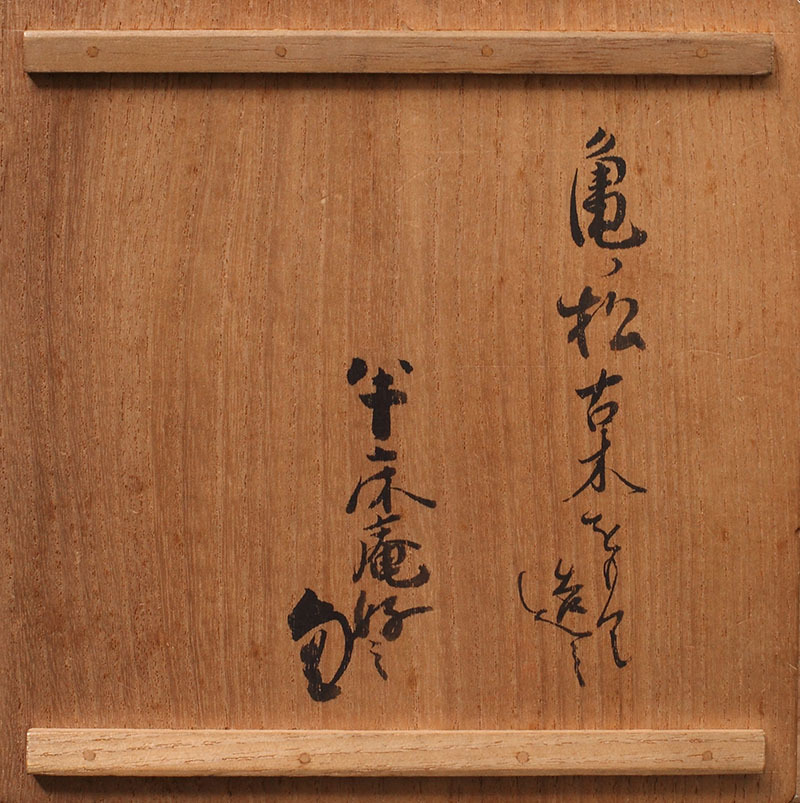 亀ノ松古木をもって
造之
半床庵好之